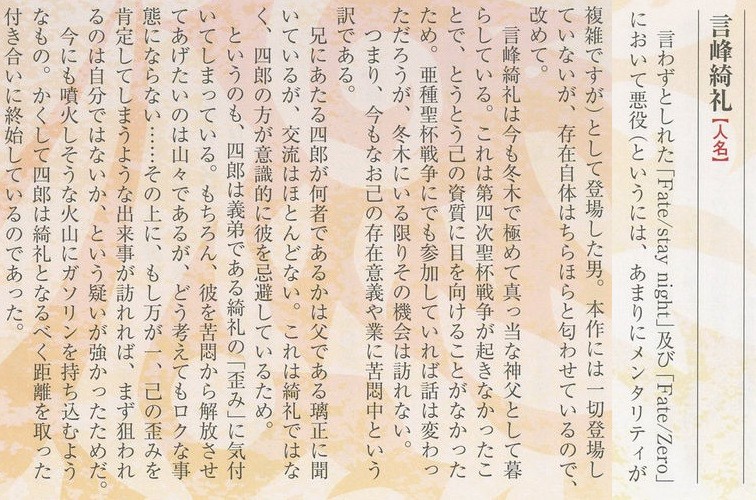 言峰綺礼【人名】
言わずとしれた「Fate/stay night」及び「Fate/Zero」
において悪役(というには、あまりにメンタリティが
複雑ですが)として登場した男。本作には一切登場し
ていないが、存在自体はちらほらと匂わせているので、
改めて。
言峰綺礼は今も冬木で極めて真っ当な神父として暮
らしている。これは第四次聖杯戦争が起きなかったこ
とで、とうとう己の資質に目を向けることがなかった
ため。亜種聖杯戦争にでも参加していれば話は変わっ
ただろうが、冬木にいる限りその機会は訪れない。
つまり、今もなお己の存在意義や業に苦悶中という
訳である。
兄にあたる四郎が何者であるかは父である璃正に聞
いているが、交流はほとんどない。これは綺礼ではな
く、四郎の方が意識的に彼を忌避しているため。
というのも、四郎は義弟である綺礼の「歪み」に気付
いてしまっている。もちろん、彼を苦悶から解放させ
てあげたいのは山々であるが、どう考えてもロクな事
態にならない……その上に、もし万が一、己の歪みを
肯定してしまうような出来事が訪れれば、まず狙われ
るのは自分ではないか、という疑いが強かったためだ。
今にも噴火しそうな火山にガソリンを持ち込むよう
なもの。かくして四郎は綺礼となるべく距離を取った
付き合いに終始しているのであった。